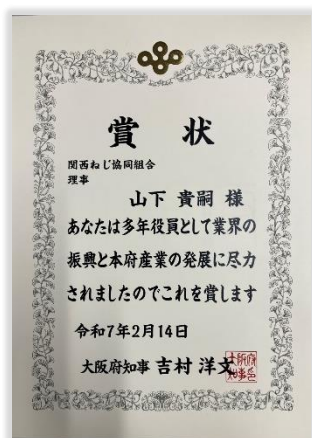 賞 状
関西ねじ協同組合
理事
山下 貴嗣 様
あなたは多年役員として業界の
振興と本府産業の発展に尽力
されましたのでこれを賞します
令和7年2月14日
大阪府知事 吉村 洋文
大阪府
知事之印